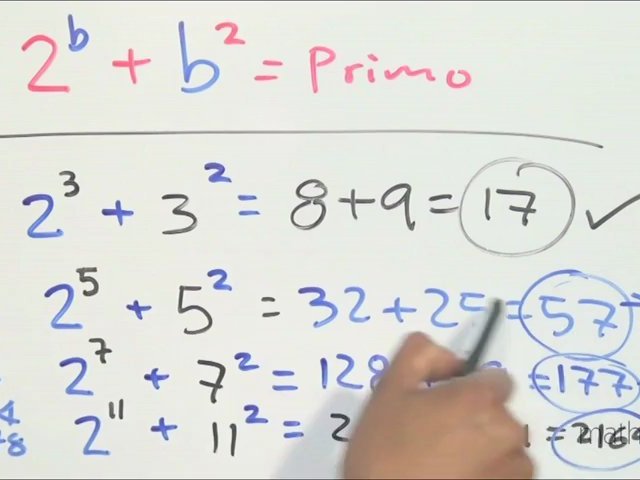 2^b + b^2 = Primo
2^3 + 3^2 = 8+9 = 17 ✓
2^5 + 5^2 = 32 + 25 = 57
2^7 + 7^2 = 128 = 177
2^11 + 11^2 = 2 1 = 216